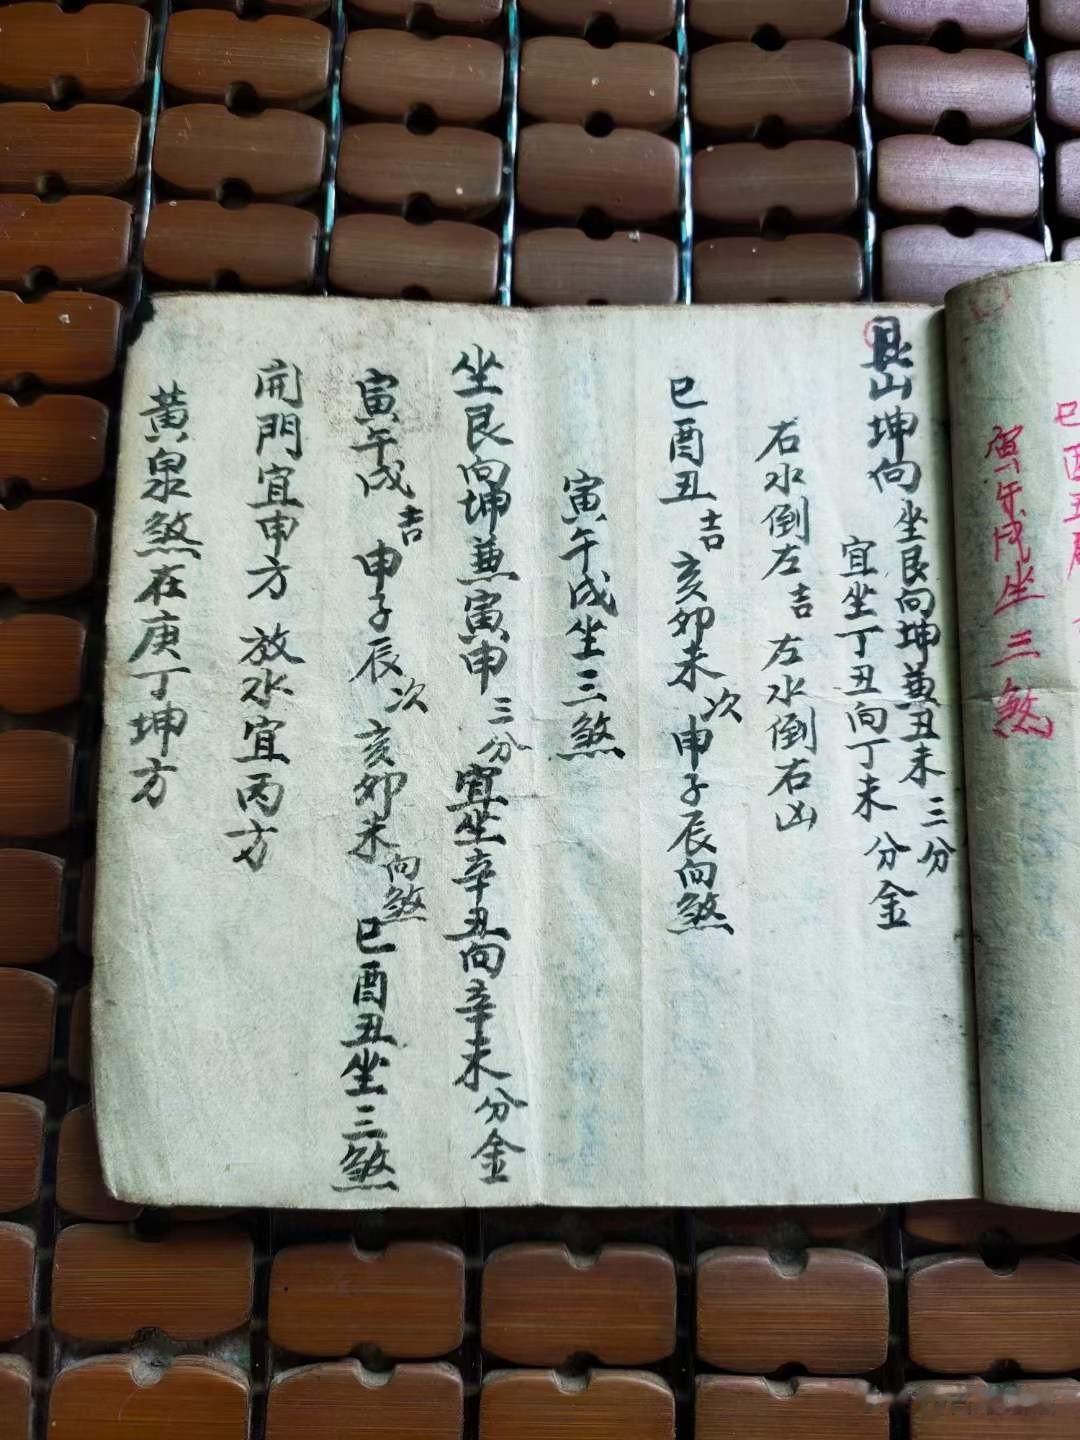 巳酉丑
寅午戌坐三煞
艮山坤向坐艮向坤兼丑未三分
宜坐丁丑向丁未分金
右水倒左吉 左水倒右凶
巳酉丑吉 亥卯未次 申子辰向煞
寅午戌坐三煞
坐艮向坤兼寅申三分宜坐辛丑向辛未分金
寅午戌吉 申子辰次 亥卯未向煞巳酉丑坐三煞
開門宜申方 放水宜丙方
黃泉煞在庚丁坤方